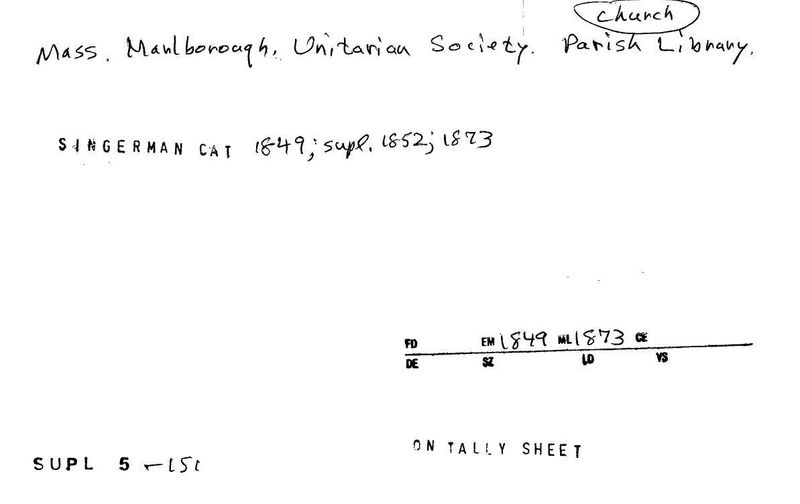 church
Mass. Marlborough. Unitarian Society. Parish Library.
SINGERMAN CAT 1849; supl. 1852; 1873
FD EM 1849 ML 1873 CE
DE SZ LD VS
ON TALLY SHEET
SUPL 5 -151